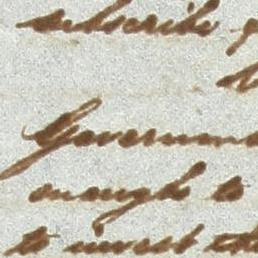 subscribe
Governmen
enough to
to invest the